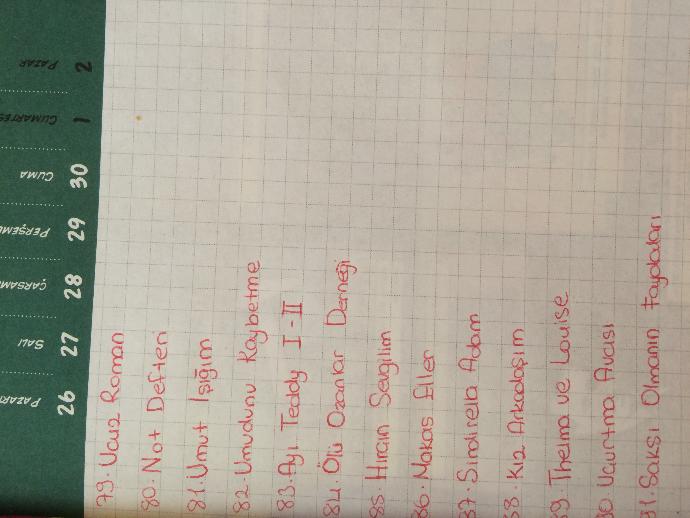 79. Ucuz Roman
80. Not Defteri
81. Umut Işığım
82. Umudunu Kaybetme
83. Ayı Teddy I-II
84. Ölü Ozanlar Derneği
85. Hırçın Sevgilim
86. Makas Eller
87. Sindirela Adam
88. Kız Arkadaşım
89. Thelma ve Louise
90. Uçurtma Avcısı
91. Saksı Olmanın Faydaları
PAZAR 2
CUMARTES 1
CUMA 30
PERŞEMB 29
ÇARŞAMB 28
SALI 27
PAZART 26